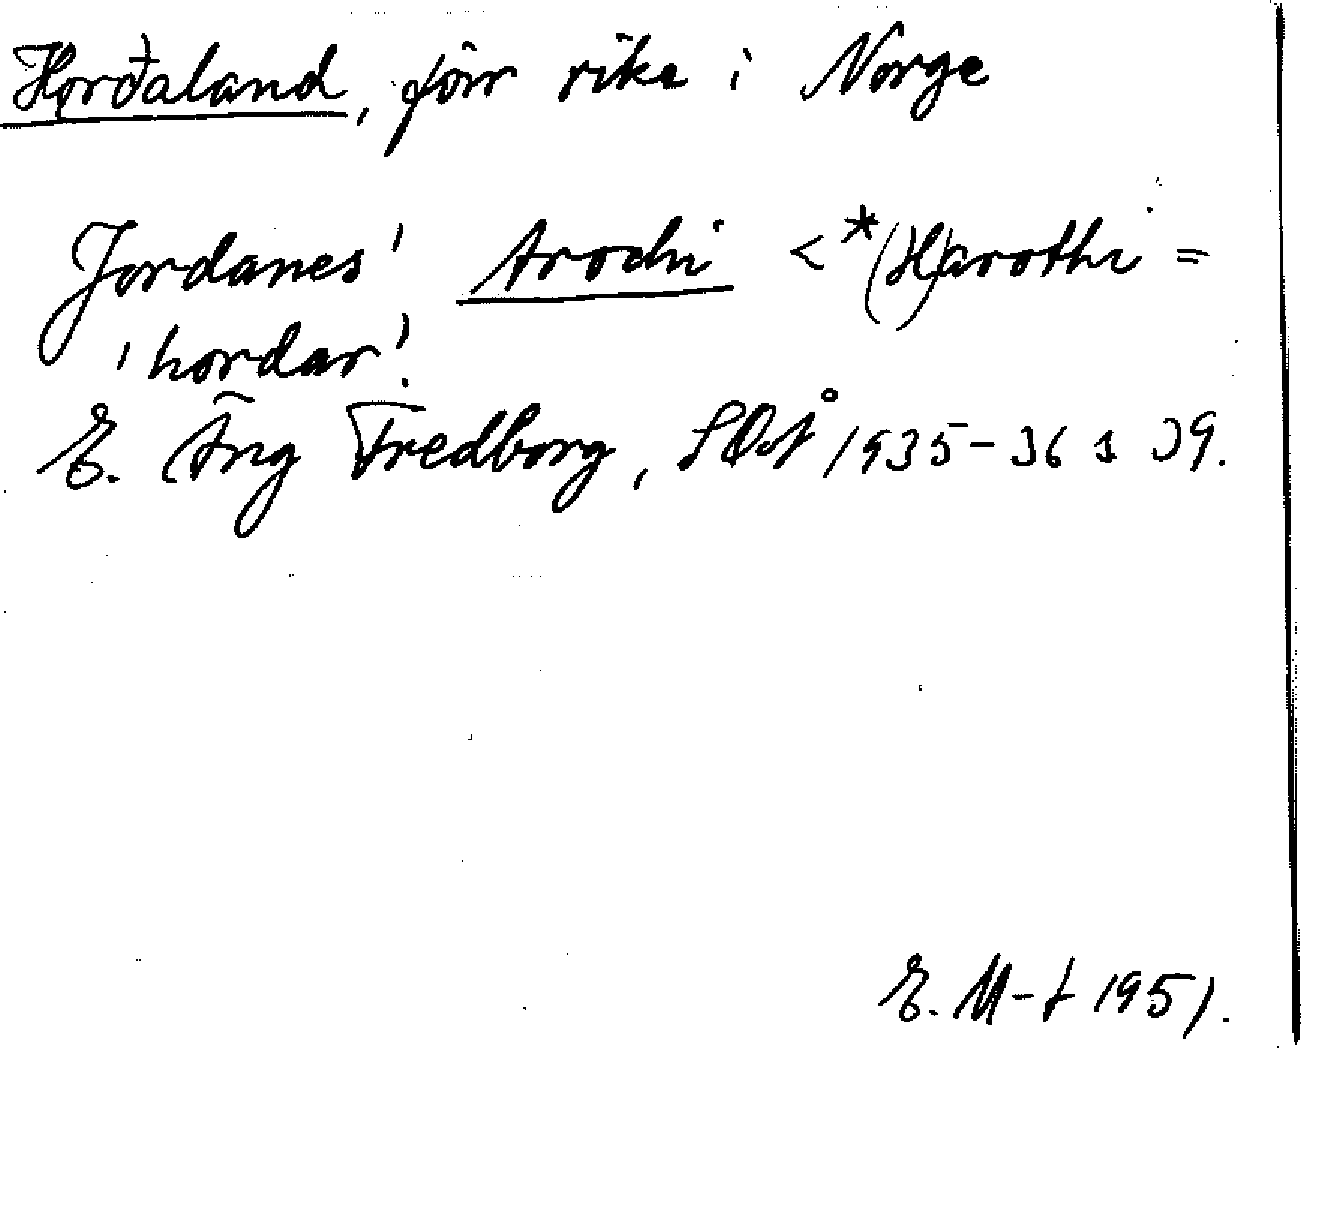 Hǫrðaland, förr rike i Norge
Jordanes' Arochi < *(H)arothi =
'hordar'.
E. Äng Fredborg, SOÅ 1935-36 s 39.
E. M-t 1951.